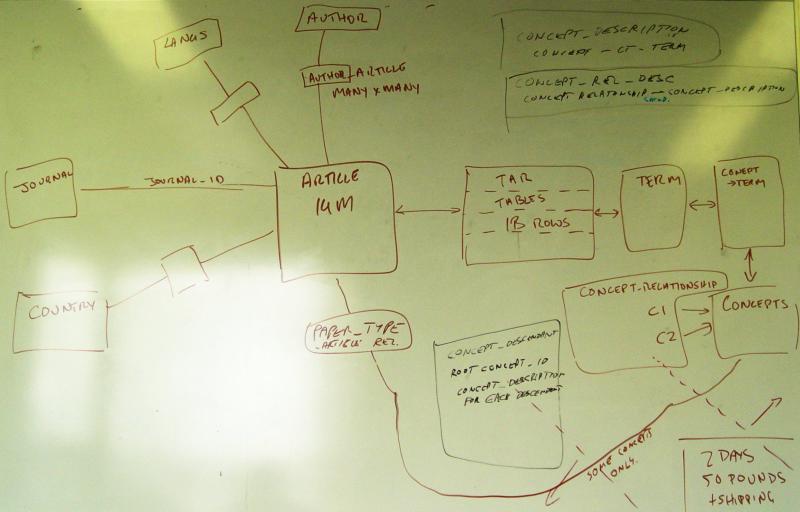 LANGS
AUTHOR
AUTHOR_ARTICLE
MANY X MANY
CONCEPT_DESCRIPTION
CONCEPT - CT - TERM
CONCEPT_REL_DESC
CONCEPT RELATIONSHIP — CONCEPT_DESCRIPTION
JOURNAL
JOURNAL_ID
ARTICLE
14M
TAR
TABLES
1B ROWS
TERM
CONEPT
→TERM
COUNTRY
PAPER_TYPE
_ARTICLE REL.
CONCEPT_RELATIONSHIP
C1
C2
CONCEPTS
CONCEPT_DESCENDANT
ROOT CONCEPT_ID
CONCEPT_DESCRIPTION
FOR EACH DESCENDENT
SOME CONCEPTS
ONLY.
2 DAYS
50 POUNDS
+SHIPPING